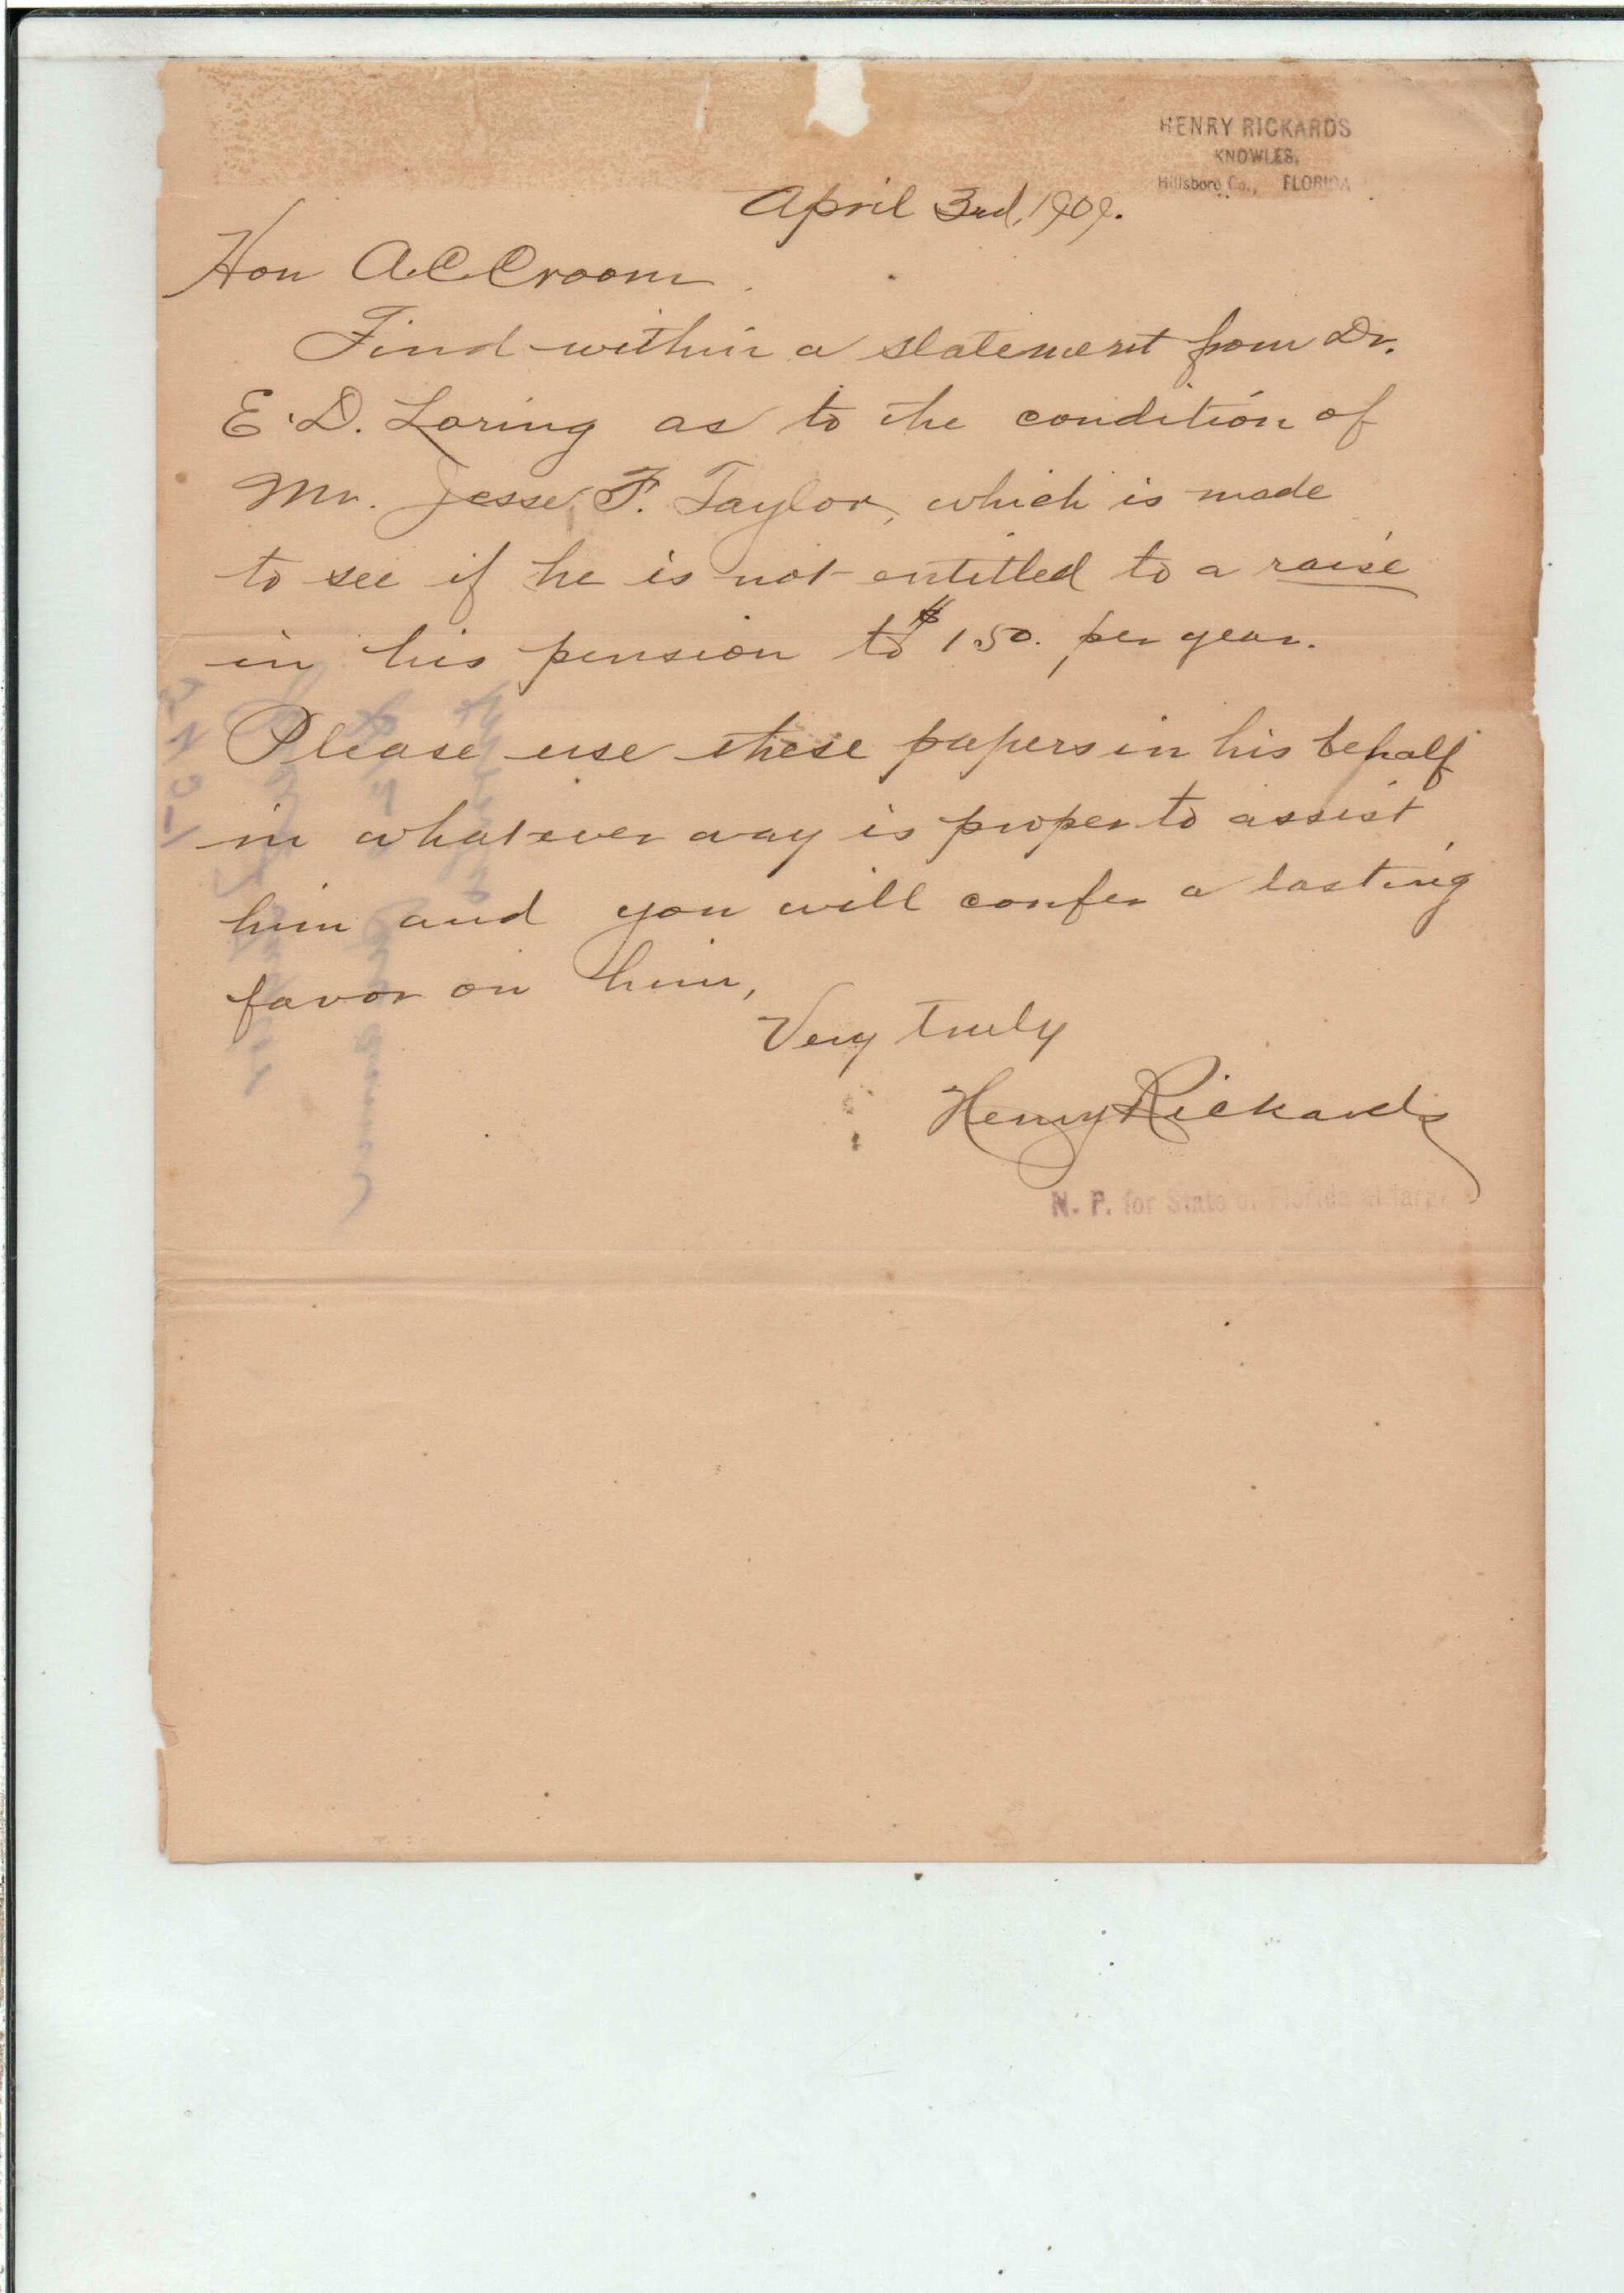 HENRY RICKARDS
KNOWLES,
Hillsboro Co., FLORIDA
April 3rd, 1909.
Hon A.C Croom
Find within a statement from Dr.
E.D. Loring as to the condition of
Mr. Jesse F. Taylor, which is made
to see if he is not entitled to a raise
in his pension to $150. per year.
Please use these papers in his behalf
in whatever way is proper to assist
him and you will confer a lasting
favor on him,
Very truly
Henry Rickards
N. P. for State of Florida at large